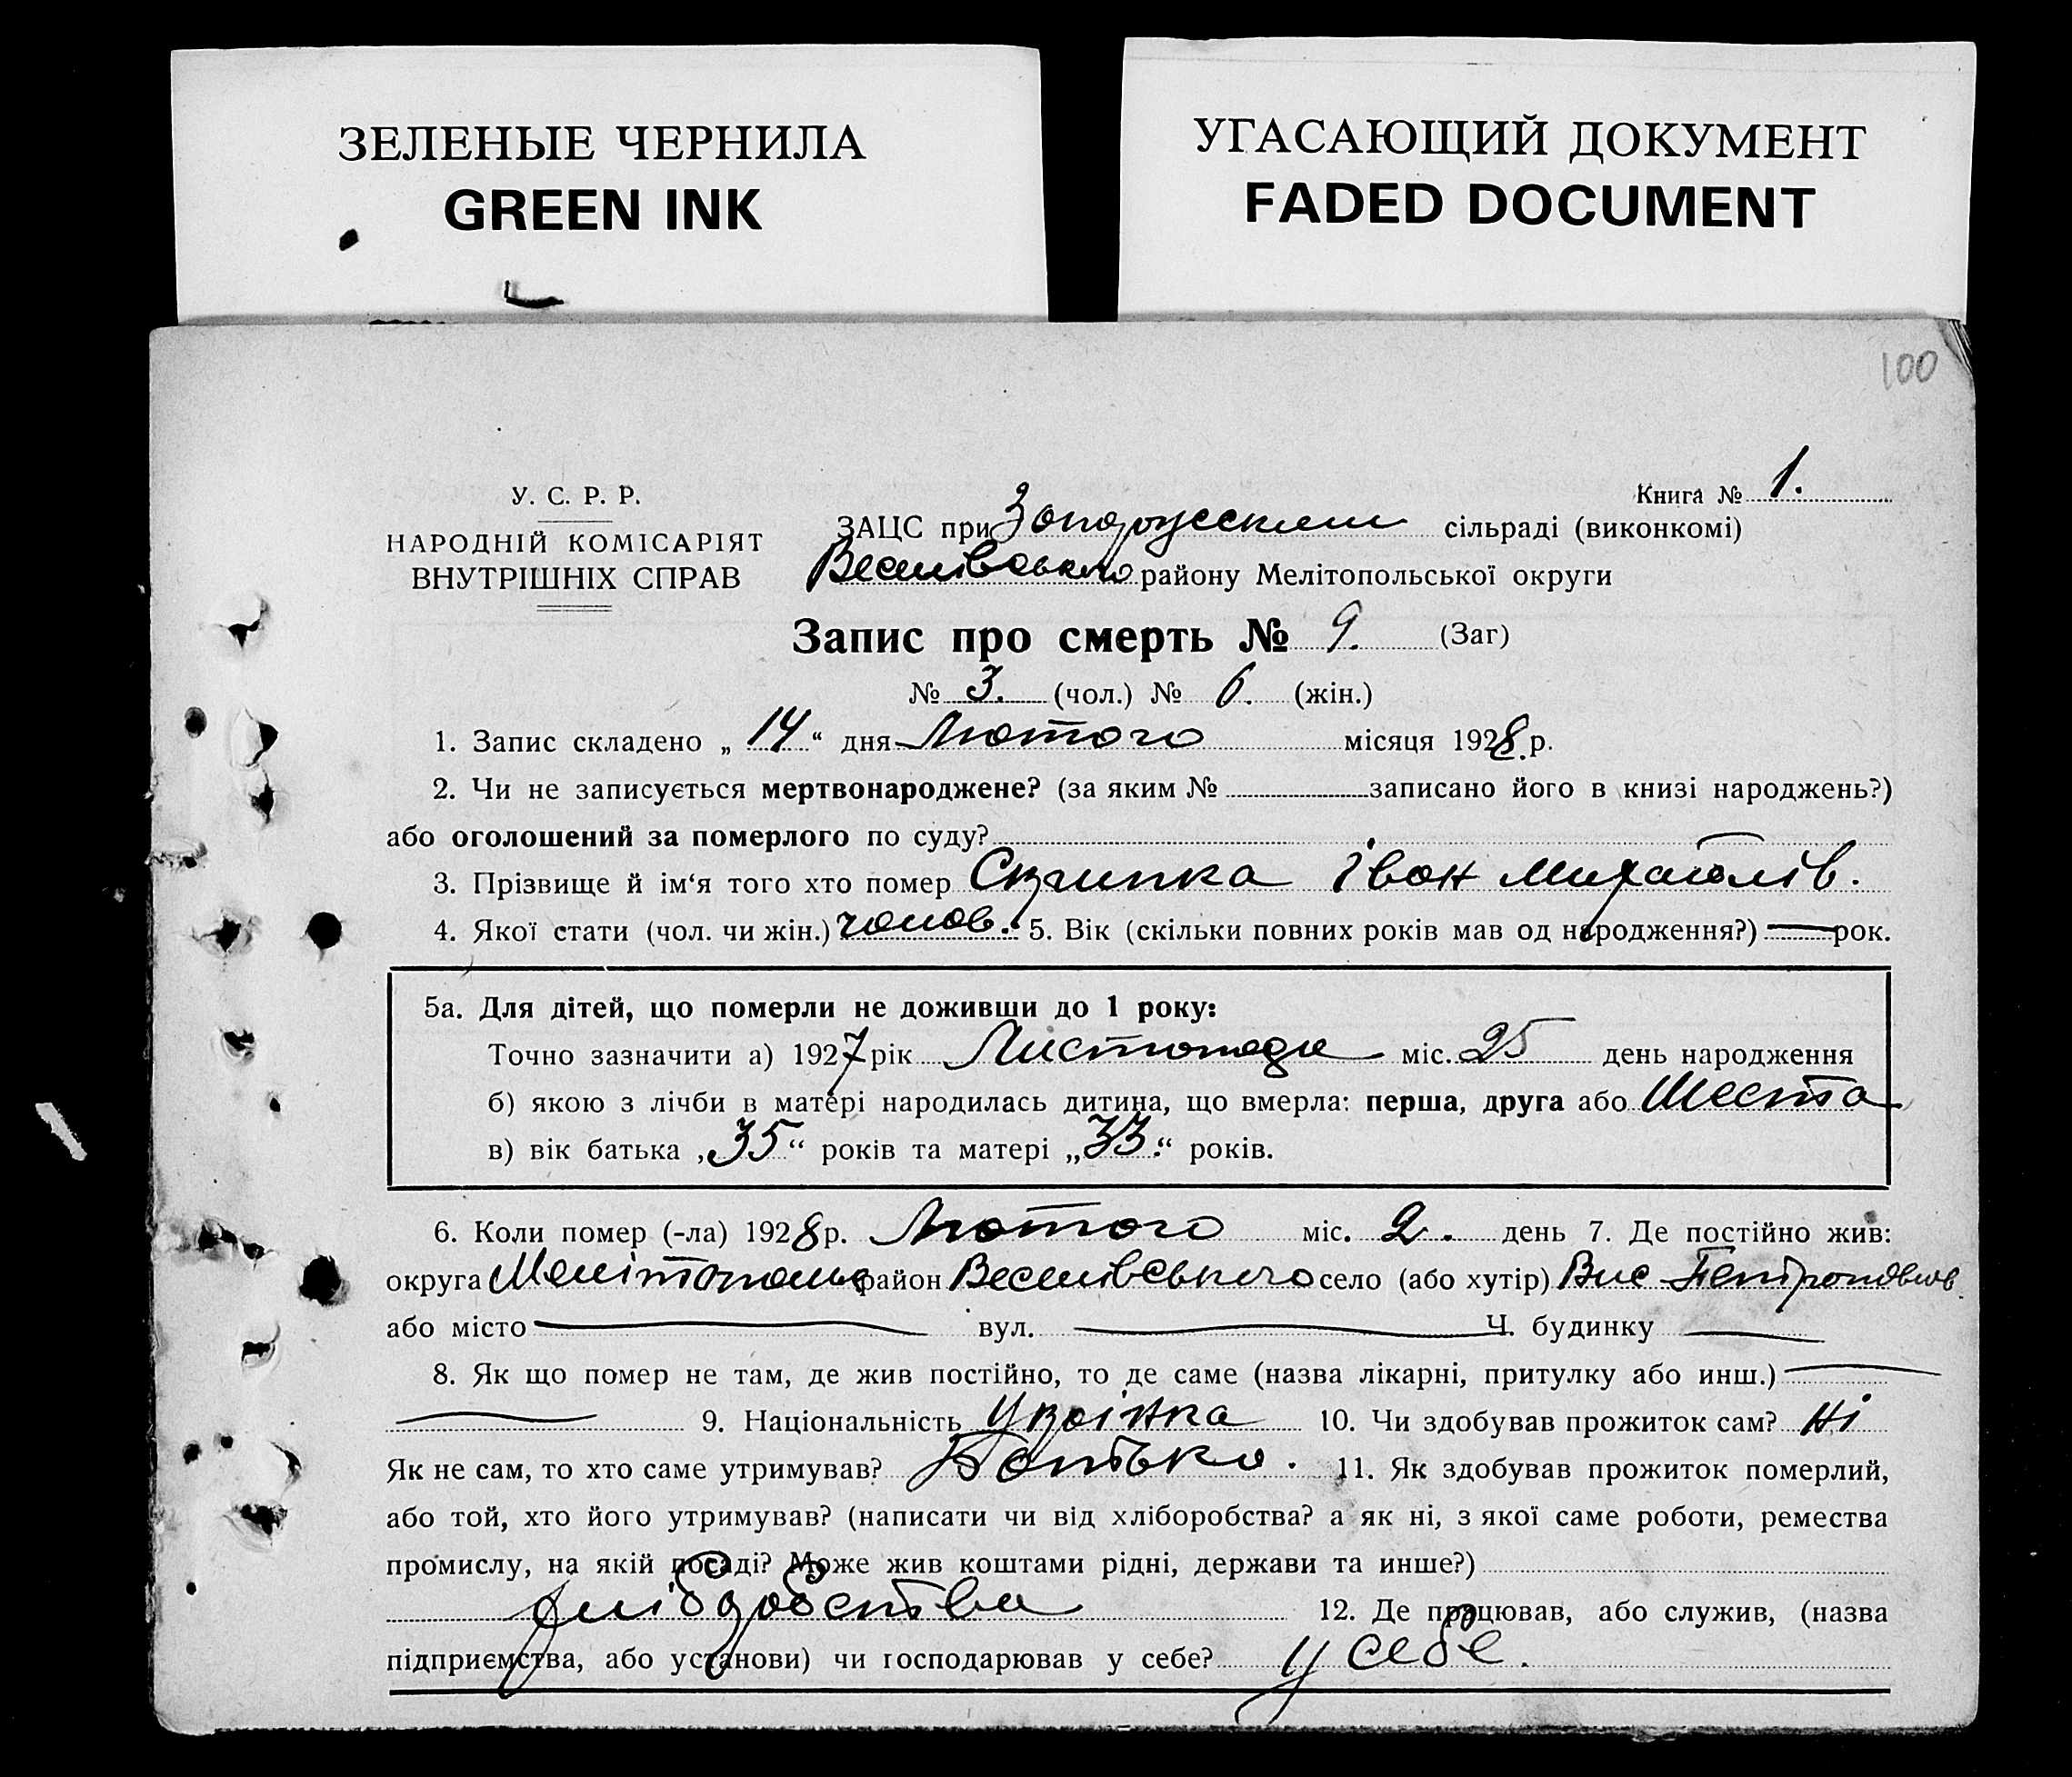 ЗЕЛЕНЫЕ ЧЕРНИЛА
GREEN INK
УГАСАЮЩИЙ ДОКУМЕНТ
FADED DOCUMENT
100
У. С. Р. Р.
НАРОДНІЙ КОМІСАРІЯТ
ВНУТРІШНІХ СПРАВ
Книга № 1.
ЗАЦС при сільраді (виконкомі)
Веселівського району Мелітопольської округи
Запис про смерть № 9. (Заг)
№ 3. (чол.) № 6. (жін.)
1. Запис складено „ 14 “ дня Лютого місяця 1928 р.
2. Чи не записується мертвонароджене? (за яким № записано його в книзі народжень?)
або оголошений за померлого по суду?
3. Прізвище й ім‘я того хто помер Скрипка Іван Михайлів.
4. Якої стати (чол. чи жін.) чолов. 5. Вік (скільки повних років мав од народження?) — рок.
5а. Для дітей, що померли не доживши до 1 року:
Точно зазначити а) 1927 рік Листопада міс. 25 день народження
б) якою з лічби в матері народилась дитина, що вмерла: перша, друга або Шеста
в) вік батька „35“ років та матері „33“ років.
6. Коли помер (-ла) 1928 р. Лютого міс. 2. день 7. Де постійно жив:
округа Мелітополь район Веселівського село (або хутір) Вис
або місто — вул. — Ч. будинку —
8. Як що помер не там, де жив постійно, то де саме (назва лікарні, притулку або инш.) —
— 9. Національність Укрїнка 10. Чи здобував прожиток сам? Ні
Як не сам, то хто саме утримував? Батько. 11. Як здобував прожиток померлий,
або той, хто його утримував? (написати чи від хліборобства? а як ні, з якої саме роботи, ремества
промислу, на якій посаді? Може жив коштами рідні, держави та инше?)
12. Де працював, або служив, (назва
підприємства, або установи) чи господарював у себе? у себе.